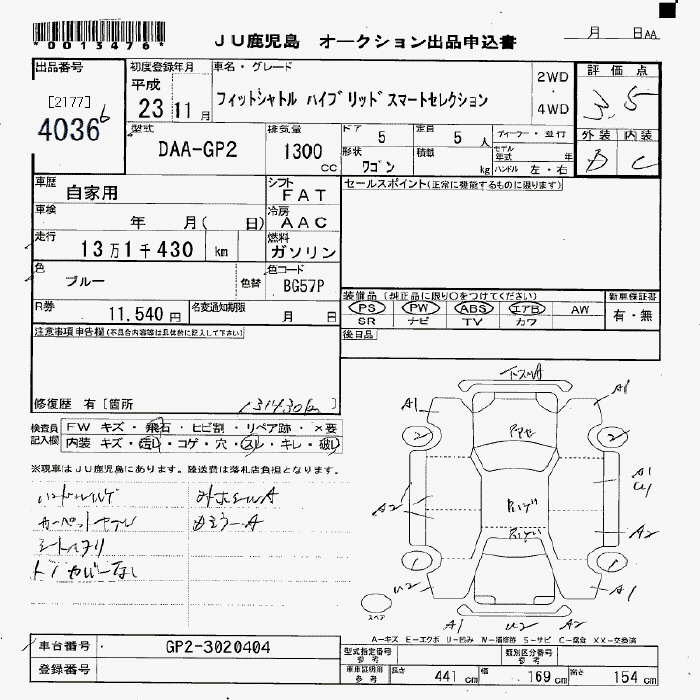 *0013476*
JU鹿児島 オークション出品申込書
月 日AA
出品番号
[2177]
4036
6
初度登録年月
平成
23 11月
車名・グレード
フィットシャトル ハイブリッドスマートセレクション
2WD
・
4WD
評価点
3.5
外装 内装
D C
型式
DAA-GP2
排気量
1300
CC
ドア
5
定員
5 人
ディーラー・並行
形状
ワゴン
積載
kg
モデル年式 年
ハンドル 左・右
車歴
自家用
シフト
FAT
セールスポイント(正常に機能するものに限ります)
車検
年 月( 日)
冷房
AAC
走行
13万1千430 km
燃料
ガソリン
色
ブルー
色替
色コード
BG57P
装備品(純正品に限り○をつけてください)
PS PW ABS エアB AW
SR ナビ TV カワ
新車保証書
有・無
R券
11,540円
名変通知期限
月 日
後日品
注意事項申告欄(不具合内容等は具体的に記入して下さい)
修復歴 有[箇所
131430km
検査員記入欄
FW キズ・飛石・ヒビ割・リペア跡・×要
内装 キズ・汚レ・コゲ・穴・スレ・キレ・破レ
※現車はJU鹿児島にあります。陸送費は落札店負担となります。
A1
A1
2
2
A1
U1
A2
A2
1
1
U2
A1
スペア
A1 U2 A1
A-キズ E-エクボ U-凹み W-補修跡 S-サビ C-腐食 XX-交換済
車台番号
GP2-3020404
登録番号
型式指定番号
参考
類別区分番号
参考
車車証明書
参考
長さ 441 cm
幅 169 cm
高さ 154 cm